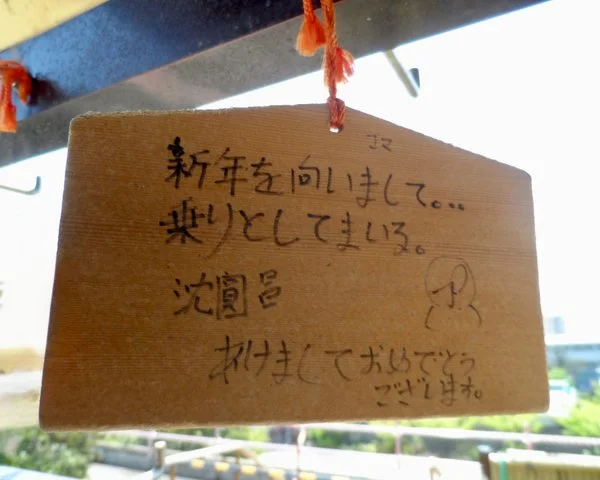 さマ
新年を向いまして。..
乗りとしてまいる。
沈圓邑
あけましておめでとう
ございます。